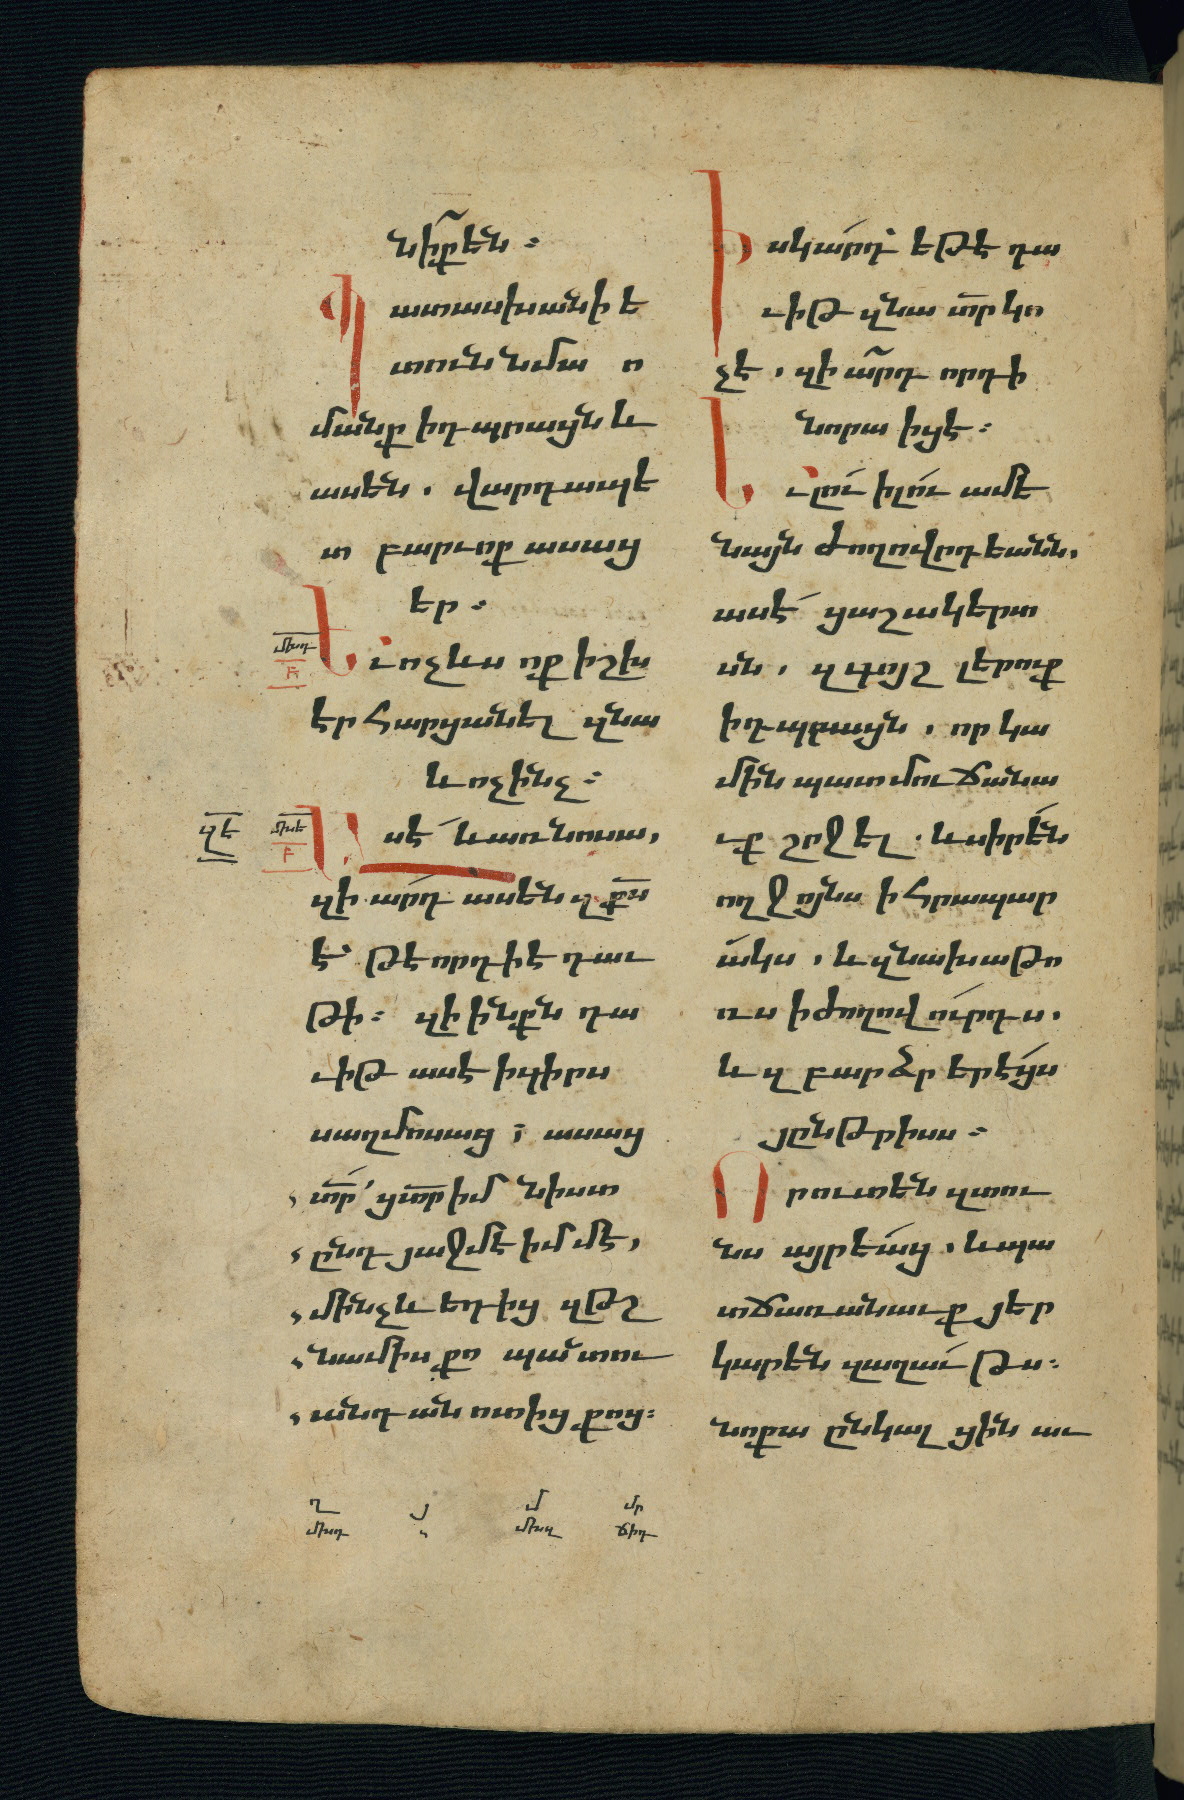 նի՛քեն։
Պատասխանի ե
տուն նմա ո
մանք ի դպրացն և
ասեն. վարդապե
տ բարւոք ասաց
եր։
Եւ ոչ ևս ոք իշխ
էր հարցանել զնա
և ոչինչ։
Ասէ՛ ևառ նոսա,
զի արդ ասեն զքս
է՝ թէ որդի է դաւ
թի։ զի ինքն դա
ւիթ ասէ ի գիրս
սաղմոսաց; ասաց
տր՛ ցտր իմ նիստ
ընդ յաջմէ իմմէ,
մինչև եդից զթշ
նամիս քո պատու
անդան ոտից քոց։
Իսկ արդ՝ եթէ դա
ւիթ զնա տր կո
չէ, զի՞արդ որդի
նորա իցէ։
Եւ ի լու ամե
նայն ժողովըդեանն,
ասէ՛ ցաշակերտ
սն, զգոյշ լերուք
ի դպրացն, որ կա
մին պատմուճանա
ւք շրջել. և սիրեն
ողջոյնս ի հրապար
ակս, և զնախաթո
ռս ի ժողովուրդս,
և զբարձր երէցս
յընթրիսս։
Որ ուտեն զտու
նս այրեաց, և պա
տճառանաւք յեր
կարեն զաղաւթս։
նոքա ընկալցին աւ